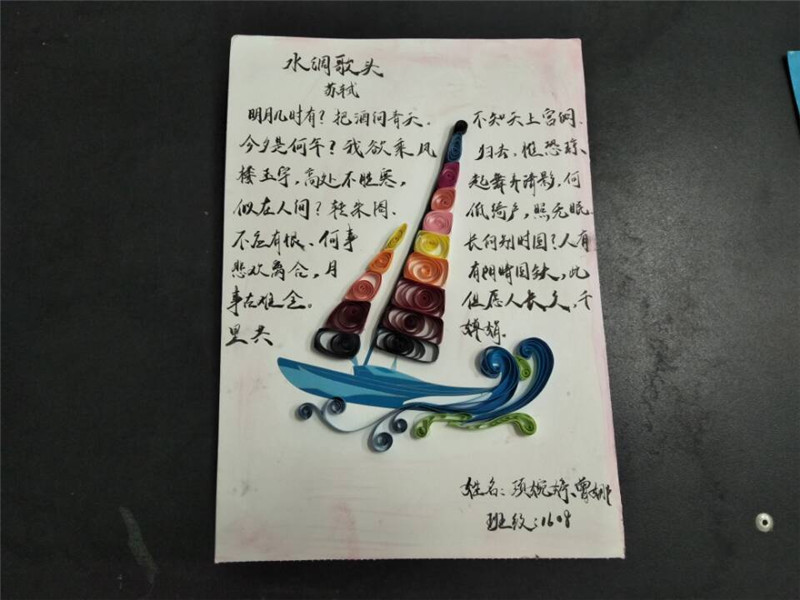 水调歌头
苏轼
明月几时有？把酒问青天。 不知天上宫阙、
今夕是何年？我欲乘风 归去，惟恐琼、
楼玉宇，高处不胜寒， 起舞弄清影，何
似在人间？转朱阁、 低绮户，照无眠
不应有恨、何事 长向别时圆？人有
悲欢离合，月 有阴晴圆缺，此
事古难全。 但愿人长久，千
里共 婵娟。
姓名：
班级：1608